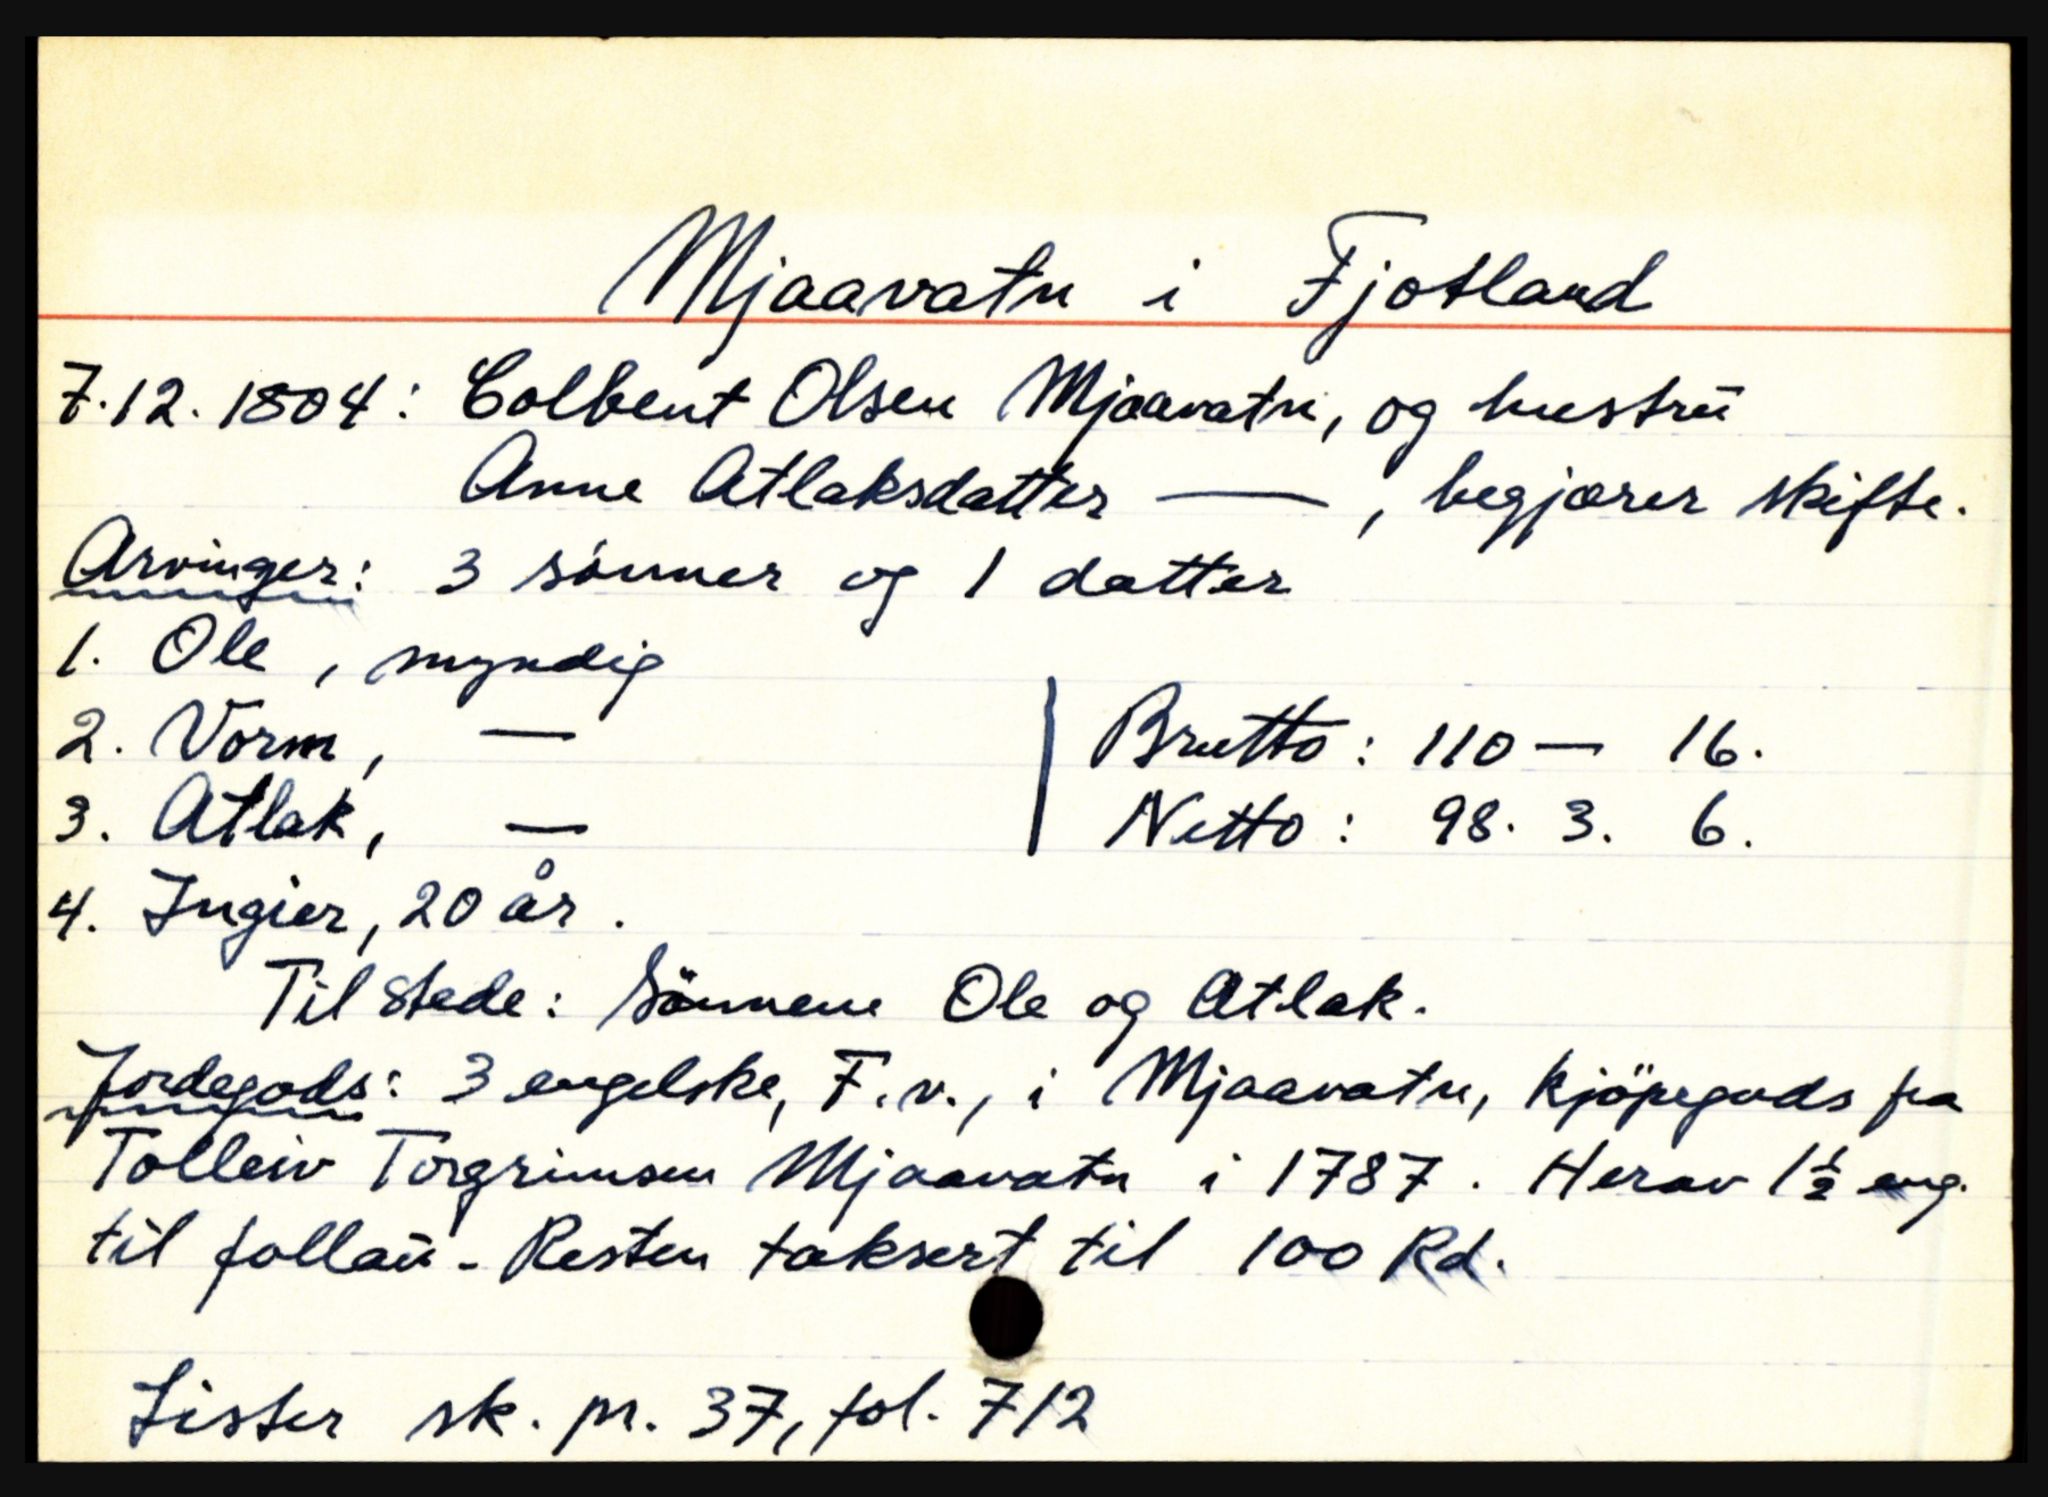 Mjaavatn i Fjotland
7.12.1804: Colbent Olsen Mjaavatn, og hustrū
Anne Atlaksdatter —, begjærer skifte.
Arvinger: 3 sønner og 1 datter
1. Ole, myndig
2. Vorm, —
3. Atlak, —
4. Ingier, 20 år.
Brutto: 110 — 16.
Netto: 98. 3. 6.
Til stede: Sönnene Ole og Atlak.
Jordegods: 3 engelske, F.v., i Mjaavatn, kjöpegods fra
Tolleiv Torgrimsen Mjaavatn i 1787. Herav 1½ eng.
til follaū - Resten taksert til 100 Rd.
Lister sk. pr. 37, fol. 712